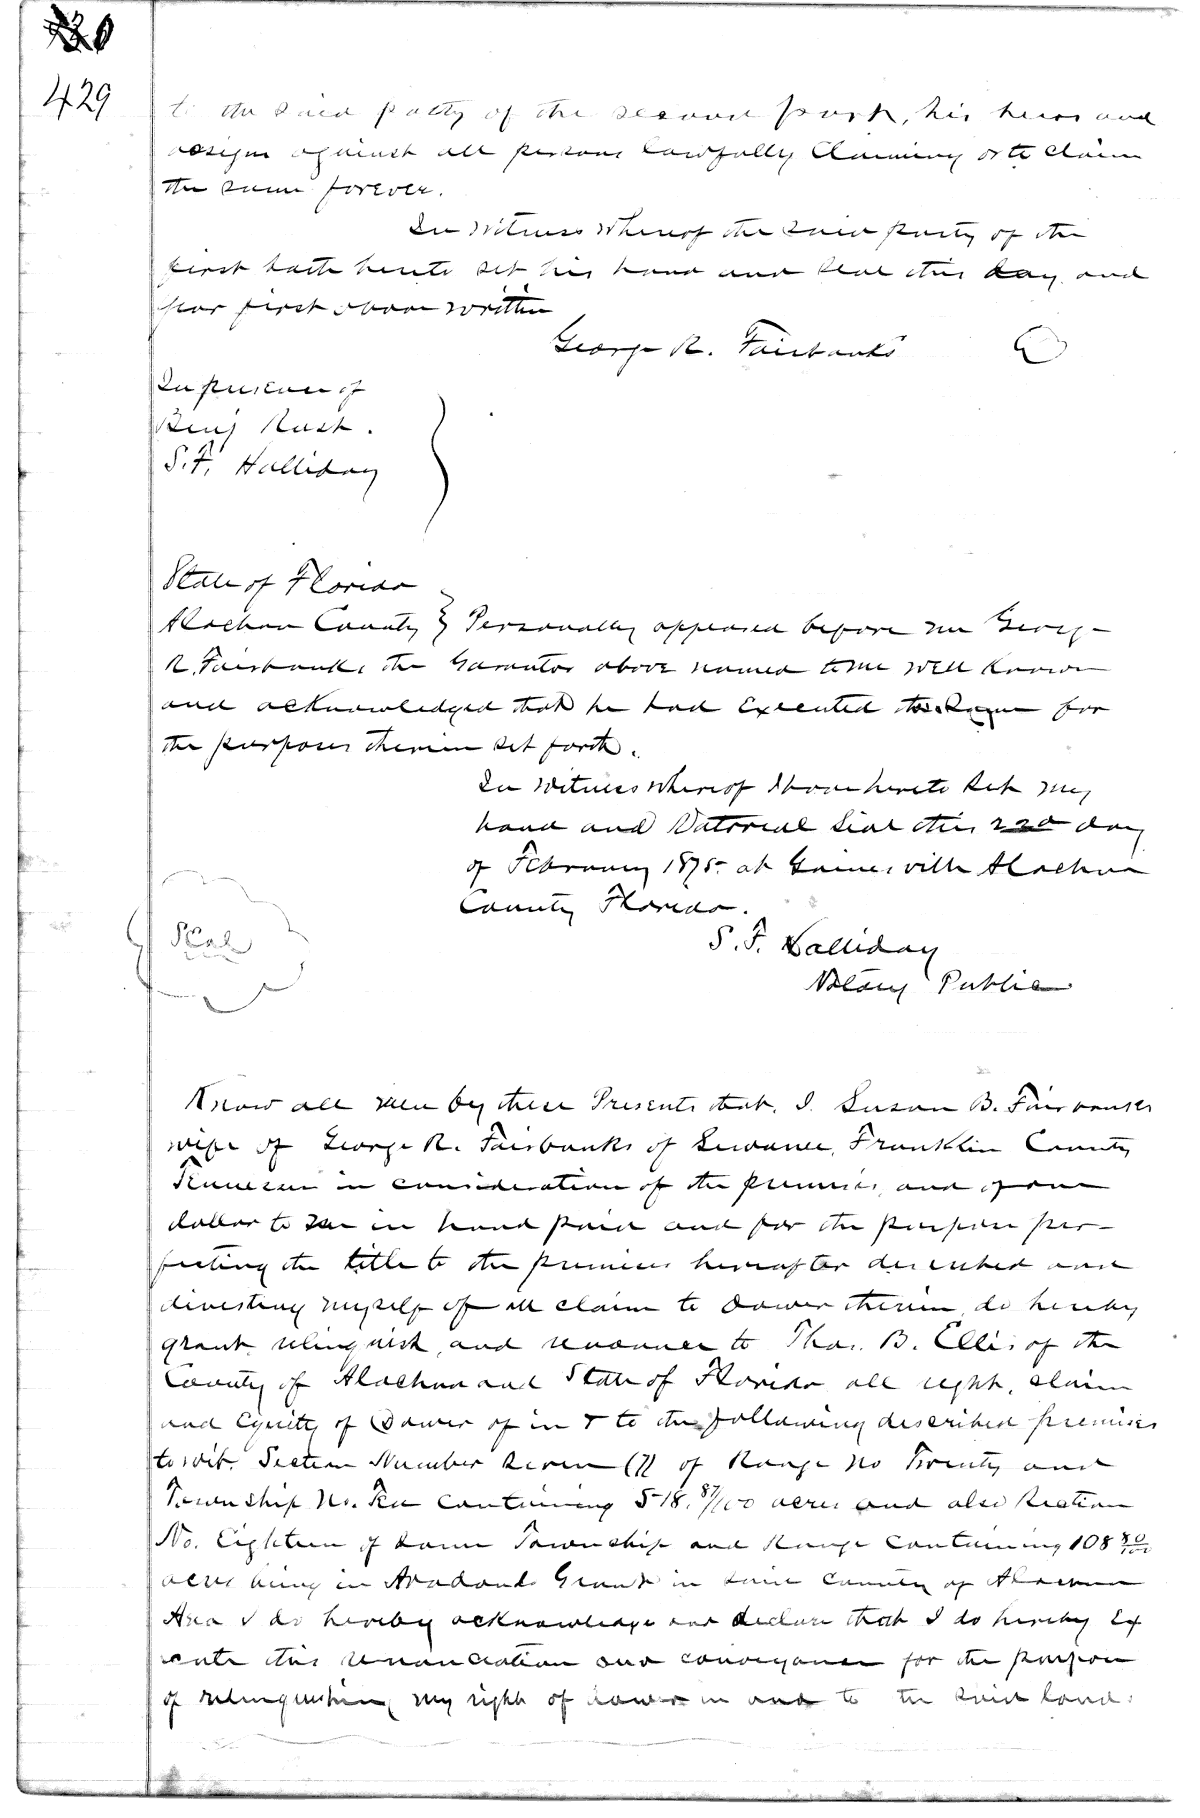 429
to the said party of the second part, his heirs and
assigns against all persons lawfully claiming or to claim
the same forever.
In witness whereof the said party of the
first hath hereto set his hand and seal this day and
year first above written
George R. Fairbanks
In presence of
Benj Rush.
S. F. Halliday
State of Florida
Alachua County } Personally appeared before me George
R. Fairbanks the Garantor above named to me well known
and acknowledged that he had Executed the same for
the purposes therein set forth.
In witness whereof I have hereto set my
hand and Notorial Seal this 22d day
of February 1875 at Gainesville Alachua
County Florida.
Seal
S. F. Halliday
Notary Public
Know all men by these Presents that, I Susan B. Fairbanks
wife of George R. Fairbanks of Sewanee, Franklin County
Tennessee in consideration of the premises, and of one
dollar to me in hand paid and for the purpose per-
fecting the title to the premises hereafter described and
divesting myself of all claim to Dower therein, do hereby
grant, relinquish, and renounce to Thos. B. Ellis of the
County of Alachua and State of Florida all right, claim
and Equity of Dower of in & to the following described premises
to wit. Section Number Seven (7) of Range No Twenty and
Township No. Ten containing 518. 87/100 acres and also Section
No. Eighteen of same Township and Range containing 108 80/100
acres being in Arredondo Grant in said County of Alachua
And I do hereby acknowledge and declare that I do hereby Ex
ecute this renunciation and conveyance for the purpose
of relinquishing my right of dower in and to the said land.